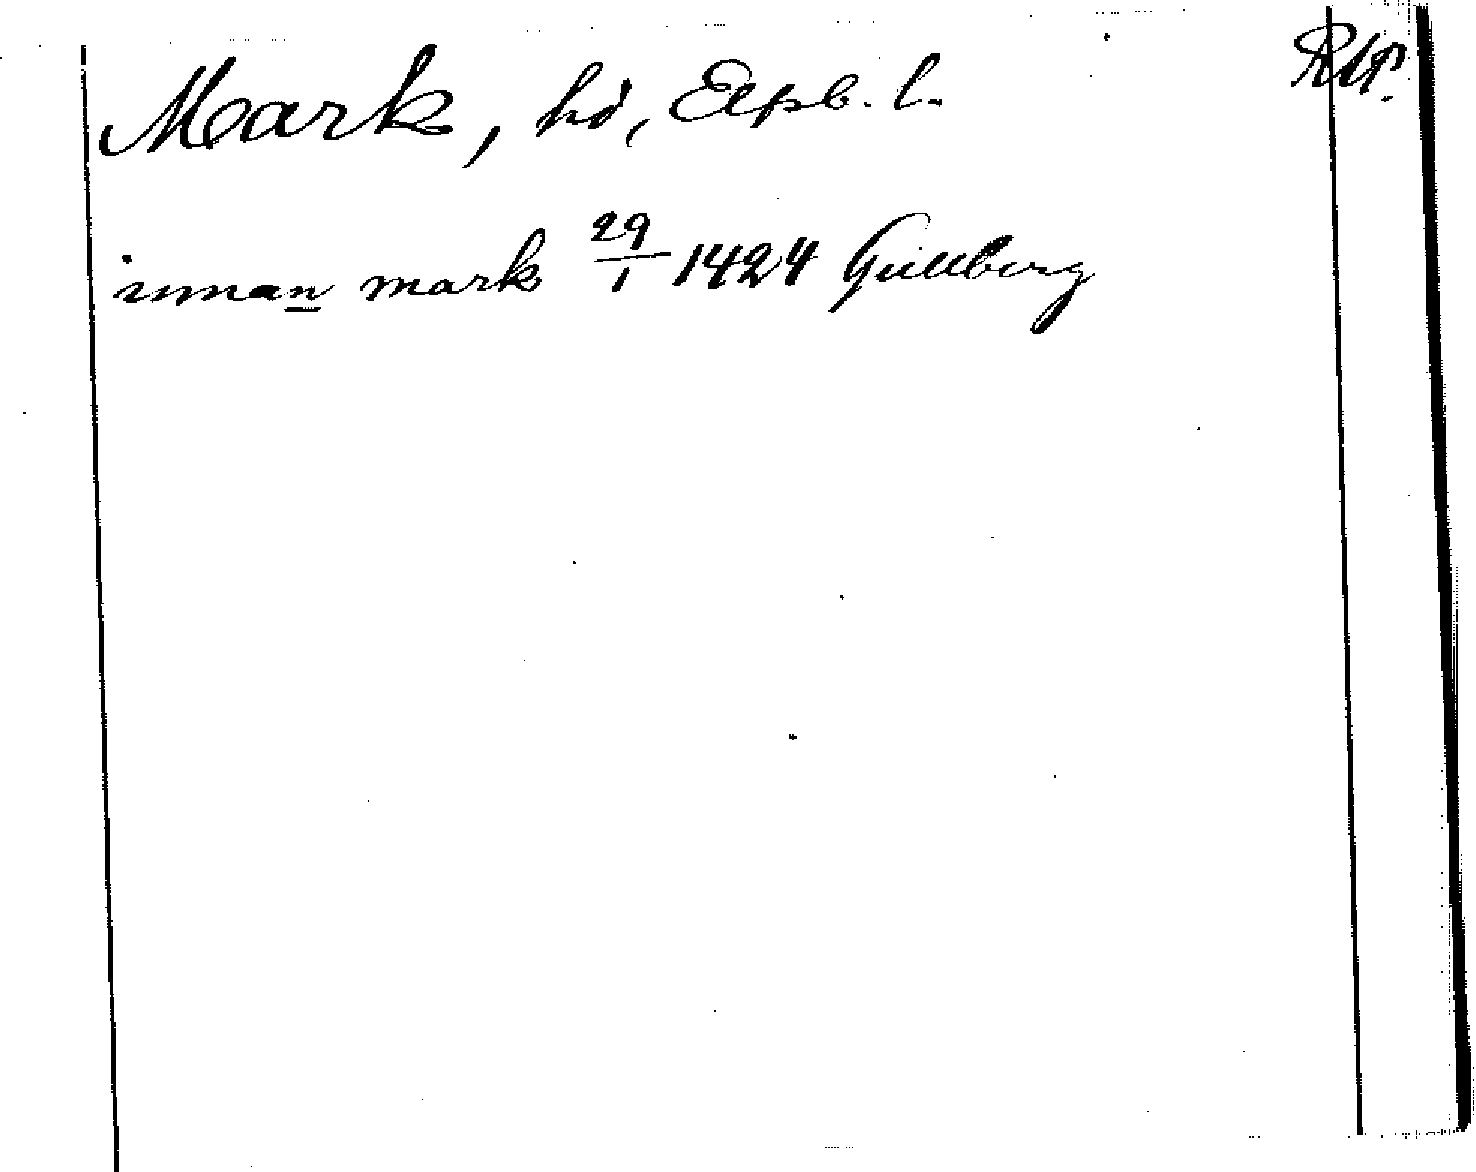 Mark, hd, Elfsb. l.
inman mark 29/1 1424 Gullberg